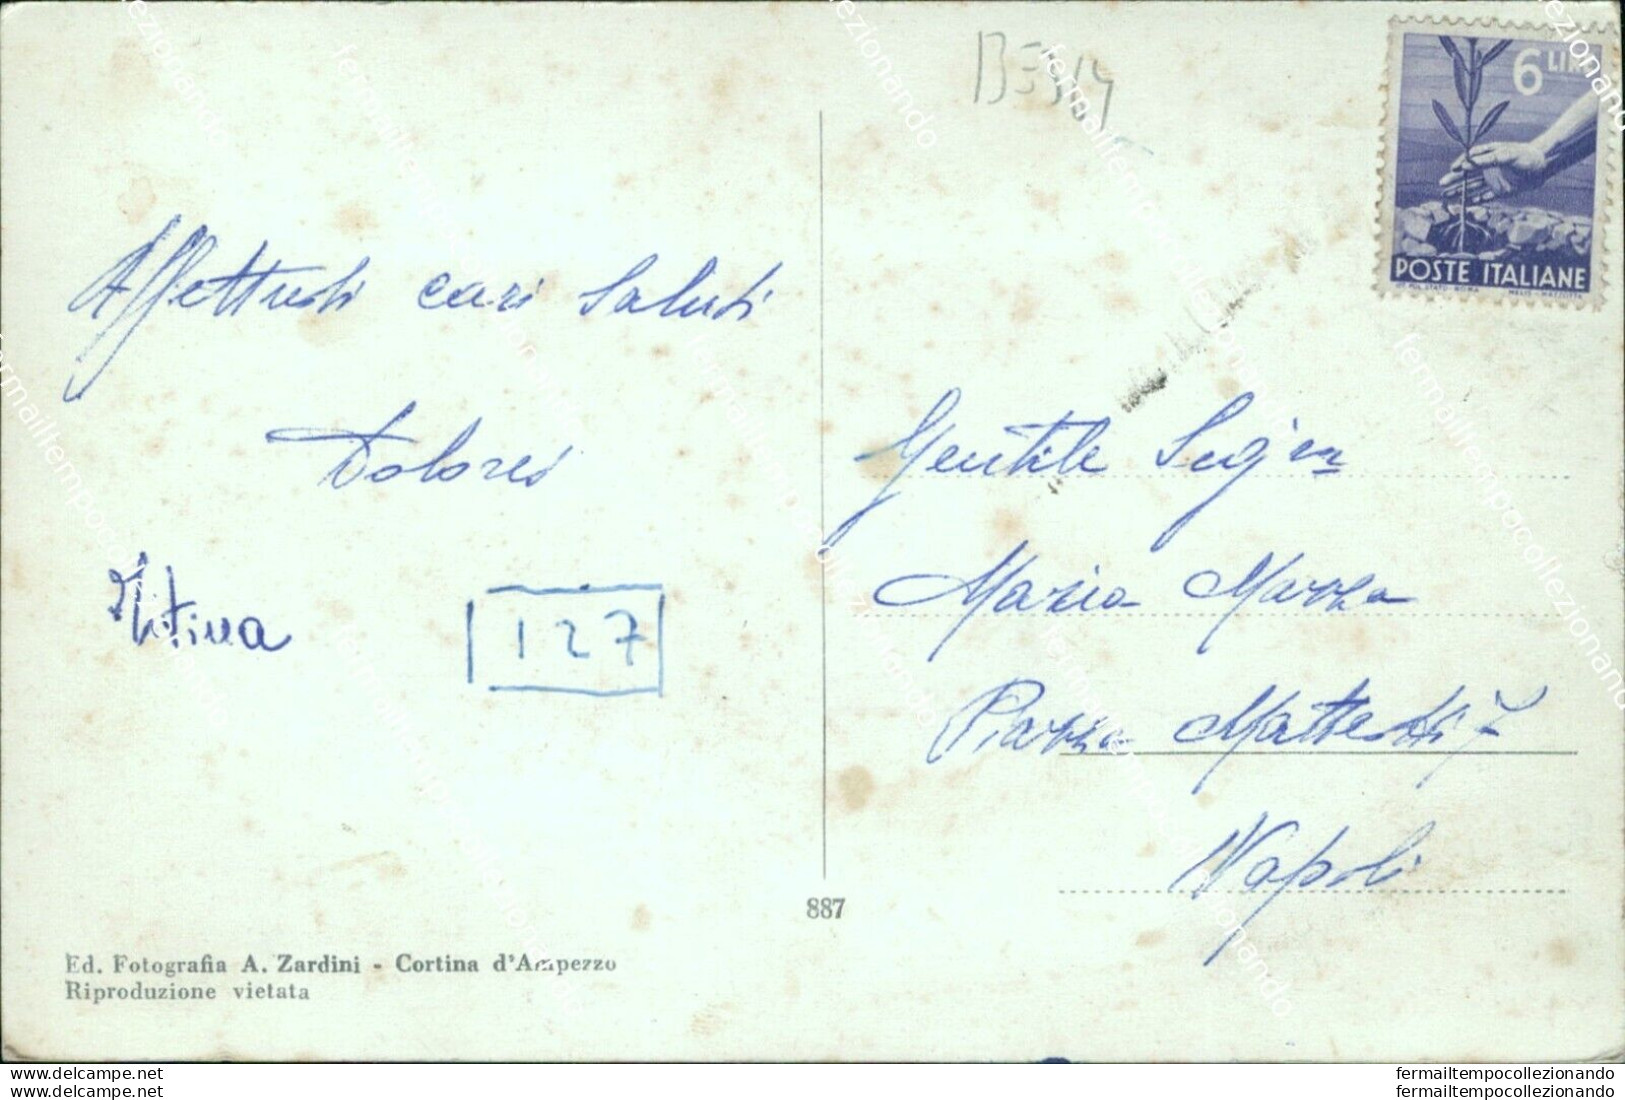 6 LIRE
POSTE ITALIANE
Affettuosi cari saluti
Dolores
Titina
127
Gentile Sig.na
Maria Mazza
Piazza Matteotti 7
Napoli
887
Ed. Fotografia A. Zardini - Cortina d'Ampezzo
Riproduzione vietata
www.delcampe.net
Riproduzione vietata
fermailtempocollezionando
fermailtempocollezionando